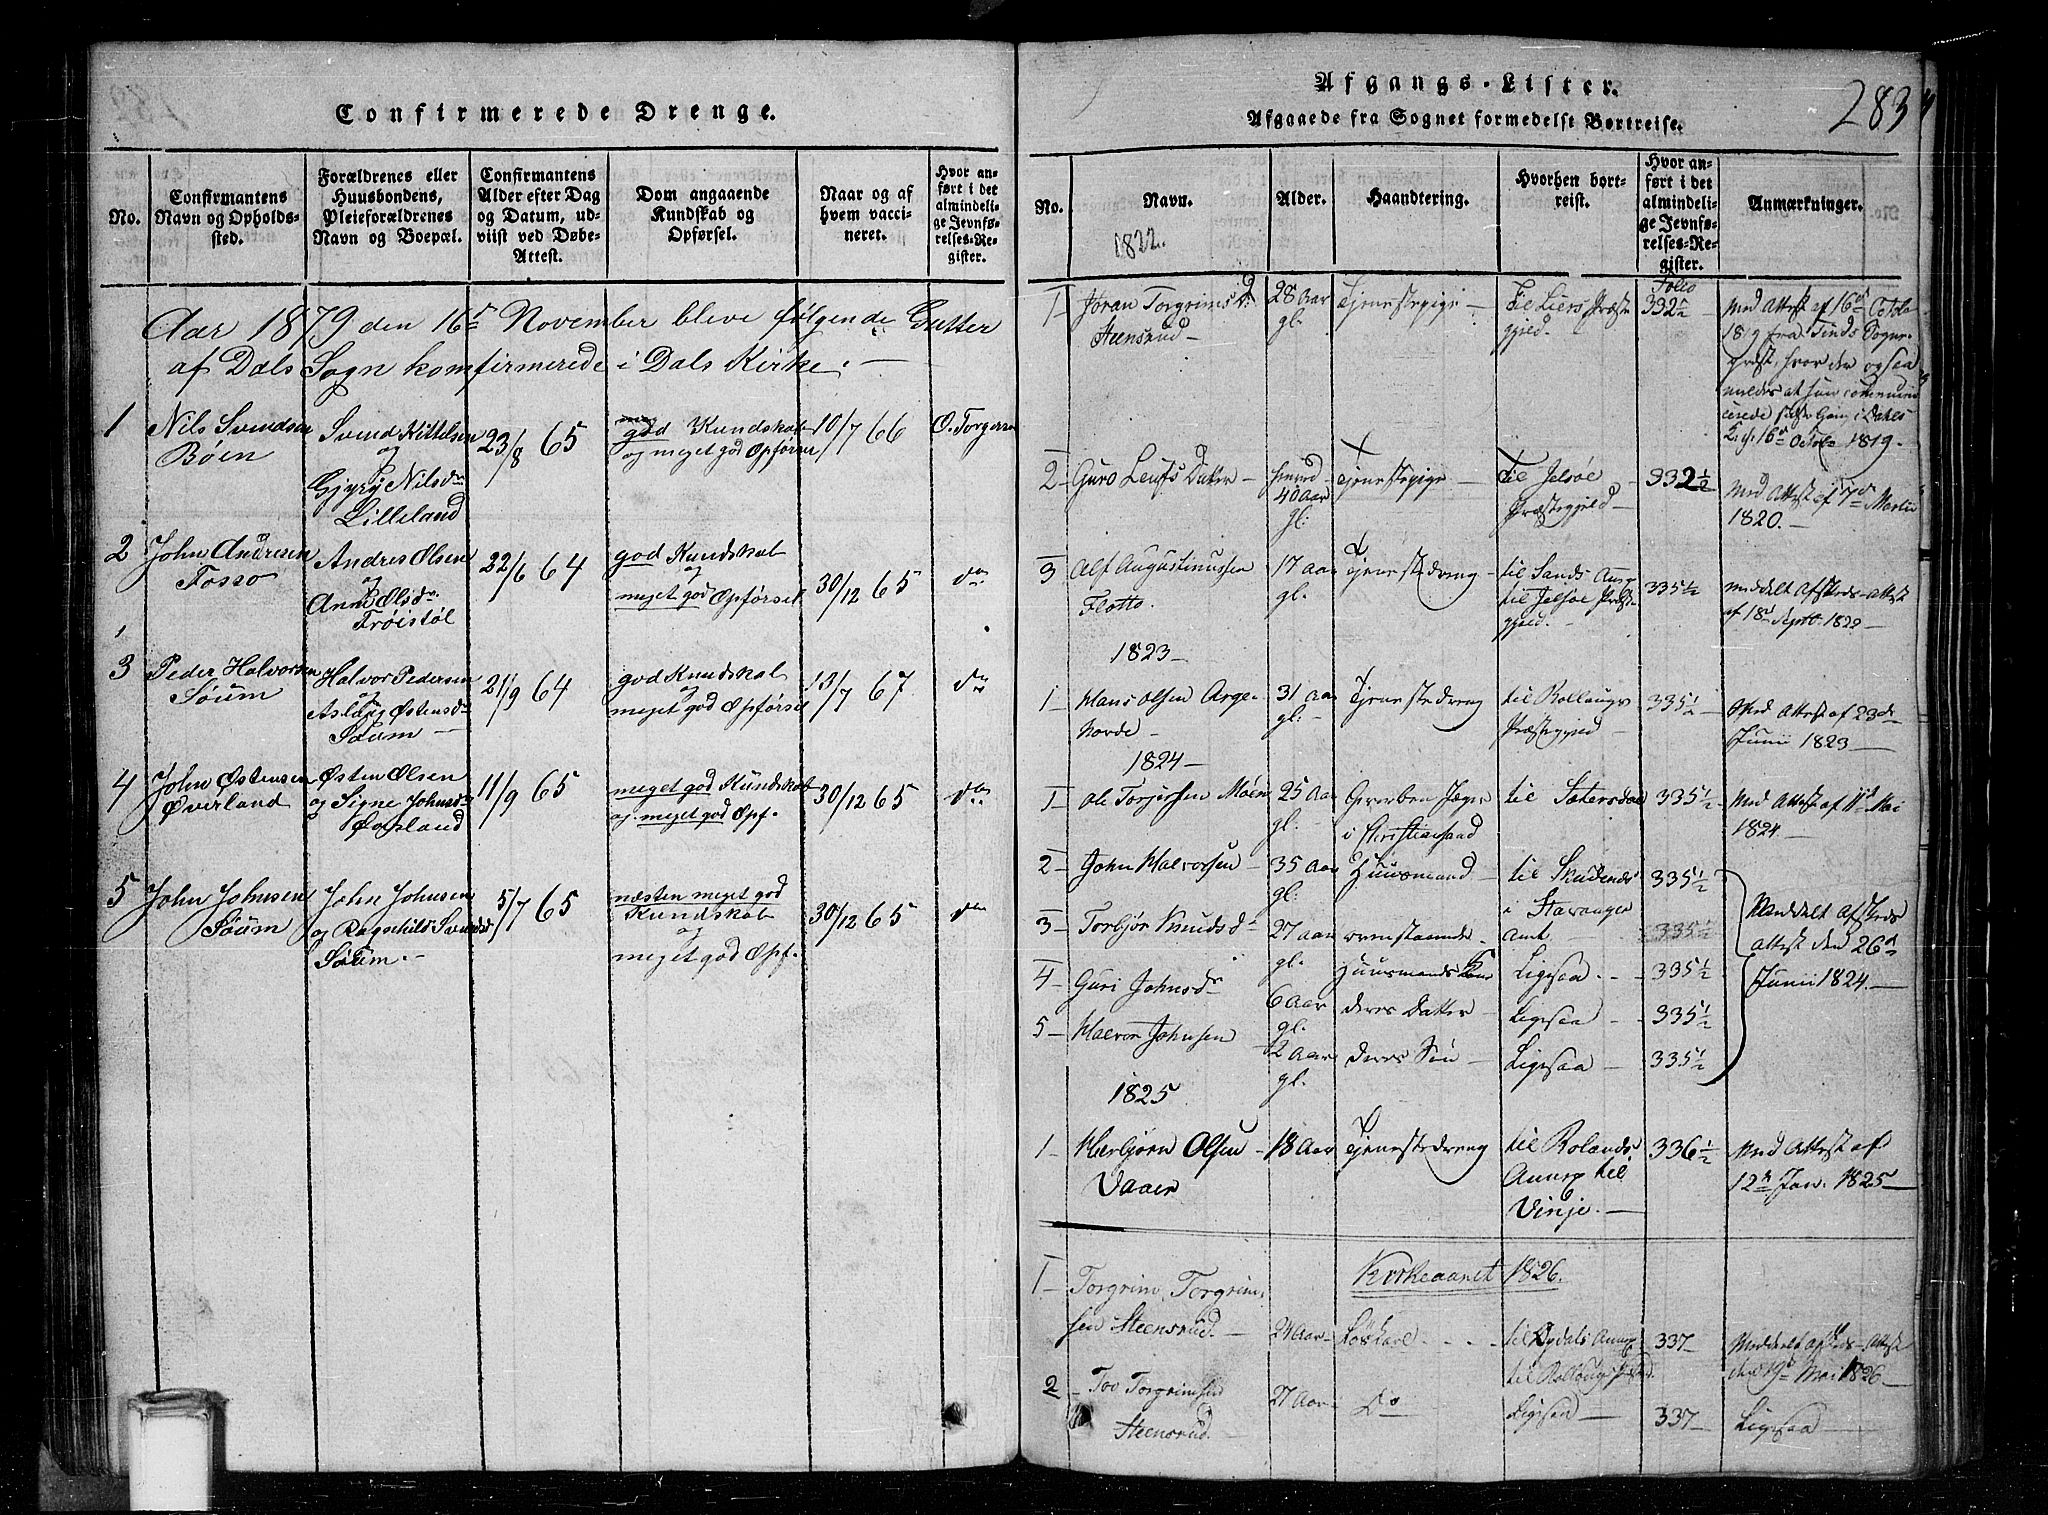 Confirmerede Drenge.
No.
Confirmantens
Navn og Opholds-
sted.
Forældrenes eller
Huusbondens,
Pleieforældrenes
Navn og Boepæl.
Confirmantens
Alder efter Dag
og Datum, ud-
viist ved Døbe-
Attest.
Dom angaaende
Kundskab og
Opførsel.
Naar og af
hvem vacci-
neret.
Hvor an-
ført i det
almindeli-
ge Jevnfø-
relses-Re-
gister.
Aar 1879 den 16de November bleve følgende Gutter
af Dals Sogn konfirmerede i Dals Kirke.
1
Nils Svendsen
Bøen
Svend Kittelsen
og
Gjyry Nilsdr
Lilleland
23/8 65
god Kundskab
og meget god Opførsel
10/7 66
O. Torgersen
2
John Andresen
Fosso
Andres Olsen
og
Anne Olsdr
Trøistøl
22/6 64
god Kundskab
og
meget god Opførsel
30/12 65
do
3
Peder Halvorsen
Søum
Halvor Pedersen
og
Aslaug Østensdr
Søum
21/9 64
god Kundskab
og
meget god Opførsel
13/7 67
do
4
John Østensen
Øverland
Østen Olsen
og Signe Johnsdr
Øverland
11/9 65
meget god Kundskab
og meget god Opf.
30/12 65
do
5
John Johnsen
Søum
John Johnsen
og Ragnhild Svendsd
Søum.
5/7 65
næsten meget god
Kundskab
og
meget god Opf.
30/12 65
do
Afgangs-Lister.
Afgaaede fra Sognet formedelst Bortreise.
283
No.
Navn.
Alder.
Haandtering.
Hvorhen bort-
reist.
Hvor an-
ført i det
almindeli-
ge Jevnfø-
relses-Re-
gister.
Anmærkninger.
1822.
Folio
1
Jøran Torgrimsd.
Steensrud
28 Aar
gl.
Tjenestepige
til Liers Præste
gjeld.
332
Med Attest af 16de Octob.
1819 fra Tinds Sogne-
præst, hvor der ogsaa
meldes at hun communi
cerede sidste Gang i Dahls
K. d. 16de Octob 1819.
2
Guro Leufs Datter
40 Aar
gl:
Tjenestepige
til Jelsøe
Præstegjeld
332 1/2
Med Attest af 7de Martii
1820.
3
Alf Augustinussen
Flotto.
17 aar
gl.
Tjenestedreng
til Sands Annex
til Jelsøe Præste
gjeld.
335 1/2
meddelt Afskeds-Attest
af 18d Septb 1822
1823
1
Hans Olsen Arge-
Norde
31 aar
gl:
Tjenestedreng
til Rollaugs
Præstegjeld
335 1/2
Med Attest af 23de
Junii 1823
1824
1
Ole Torjersen Møen
25 Aar
gl.
i Christiansand
til Sætersdal
335 1/2
Med Attest af 11d Mai
1824
2
John Halvorsen
35 Aar
gl:
Huusmand
til Skudenæs
i Stavanger
Amt
335 1/2
Meddelt Afskeds
attest den 26d
Junii 1824.
3
Torbjør Knudsd
27 aar
gl.
ovenstaaende
Huusmands Kone
Ligesaa
335 1/2
4
Guri Johnsd
6 Aar
gl.
deres Datter
Ligesaa
335 1/2
5
Halvor Johnsen
2 Aar
gl.
deres Søn
Ligesaa
335 1/2
1825
1
Herbjørn Olsen
Vaaer
18 Aar
Tjenestedreng
til Rolands
Annex til
Vinje.
336 1/2
Med Attest af
12te Jan. 1825
Kirkeaaret 1826.
1
Torgrim Torgrim-
sen Steensrud.
24 Aar
Løskarl
til Opdals Annex
til Rollougs Præstd.
337
Meddelt afskeds-Attest
den 19d Mai 1826
2
Tov Torgrimsen
Steensrud.
27 Aar
Do
Ligesaa
337
Ligesaa